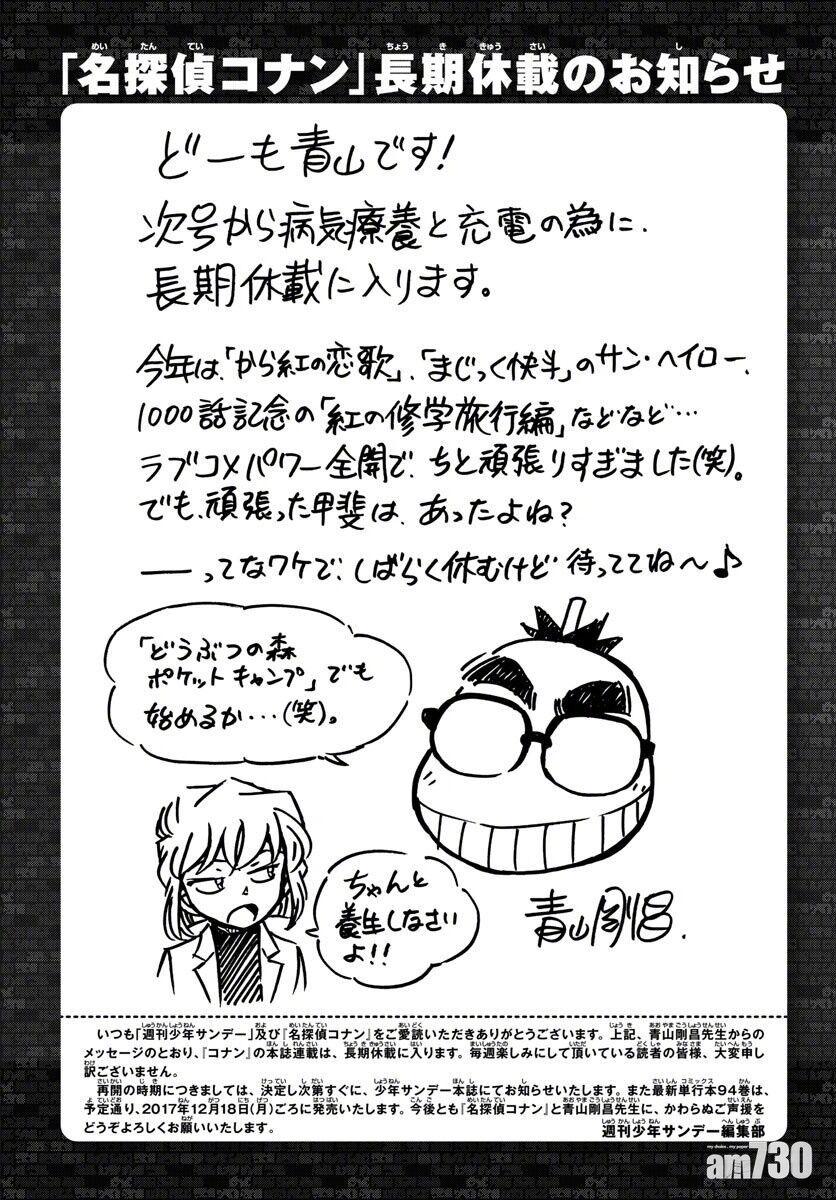 「名探偵コナン」長期休載のお知らせ
どーも青山です!
次号から病気療養と充電の為に、
長期休載に入ります。
今年は、「から紅の恋歌」、「まじっく快斗」のサン・ヘイロー、
1000話記念の「紅の修学旅行編」などなど…
ラブコメパワー全開で、ちと頑張りすぎました(笑)。
でも、頑張った甲斐は、あったよね?
——ってなワケで、しばらく休むけど 待っててね〜♪
「どうぶつの森
ポケットキャンプ」でも
始めるか…(笑)。
ちゃんと
養生しなさい
よ!!
青山剛昌.
いつも「週刊少年サンデー」及び『名探偵コナン』をご愛読いただきありがとうございます。上記、青山剛昌先生からの
メッセージのとおり、『コナン』の本誌連載は、長期休載に入ります。毎週楽しみにして頂いている読者の皆様、大変申し
訳ございません。
再開の時期につきましては、決定し次第すぐに、少年サンデー本誌にてお知らせいたします。また最新単行本94巻は、
予定通り、2017年12月18日(月)ごろに発売いたします。今後とも『名探偵コナン』と青山剛昌先生に、かわらぬご声援を
どうぞよろしくお願いいたします。
週刊少年サンデー編集部
my choice . my paper
am730